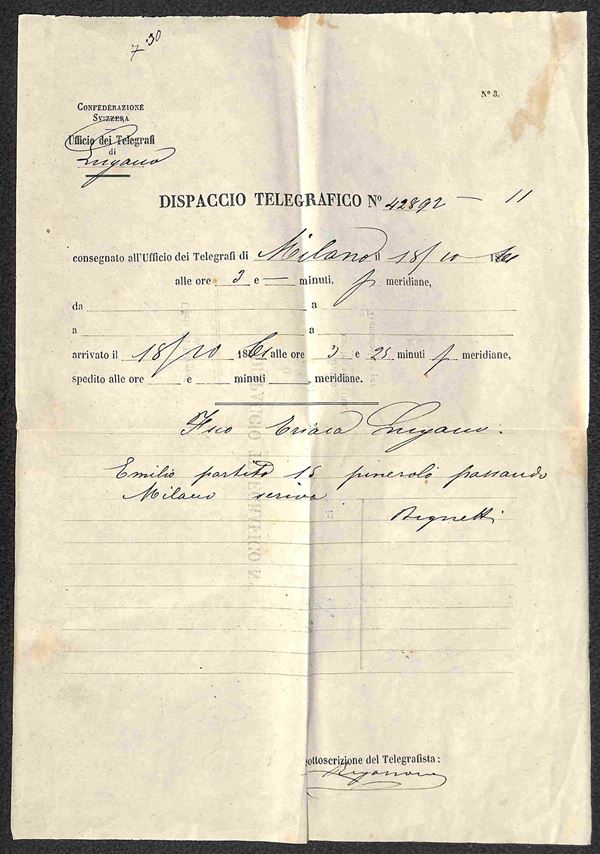 7.30
Nº 3.
CONFEDERAZIONE
SVIZZERA
Ufficio dei Telegrafi
di
Lugano
DISPACCIO TELEGRAFICO Nº 42892 — 11
consegnato all'Ufficio dei Telegrafi di Milano il 18/10 1861
alle ore 3 e — minuti, p meridiane,
da a
a a
arrivato il 18/10 1861 alle ore 3 e 25 minuti p meridiane,
spedito alle ore e minuti , meridiane.
Lugano.
Emilio partito 15 pinerolo passando
Milano scriva
Bignetti
sottoscrizione del Telegrafista: